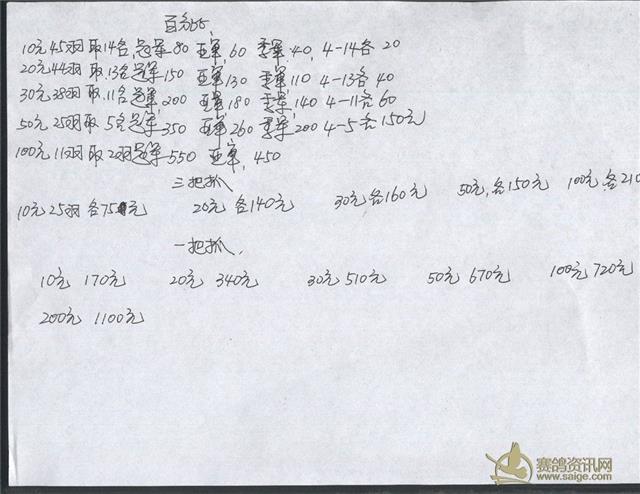 百分比
10元45羽取14名,冠军80 亚军,60 季军40,4-14各20
20元44羽取13名冠军150 亚军130 季军,110 4-13各40
30元38羽取11名冠军,200 亚军180 季军,140 4-11各60
50元25羽取5名冠军350 亚军260 季军200 4-5各150元
100元11羽取2羽冠军550 亚军,450
三把抓
10元25羽各75元 20元各140元 30元各160元 50元,各150元 100元各210
一把抓,
10元170元 20元340元 30元510元 50元670元 100元720元
200元1100元
赛鸽资讯网
www.saige.com